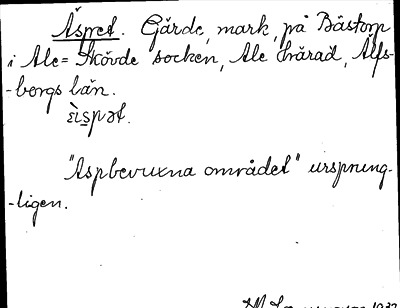 Äspret. Gärde, mark, på Båstorp
i Ale-Skövde socken, Ale härad, Älfs-
-borgs län.
èi̯spət.
"Aspbevuxna området" ursprung-
-ligen.